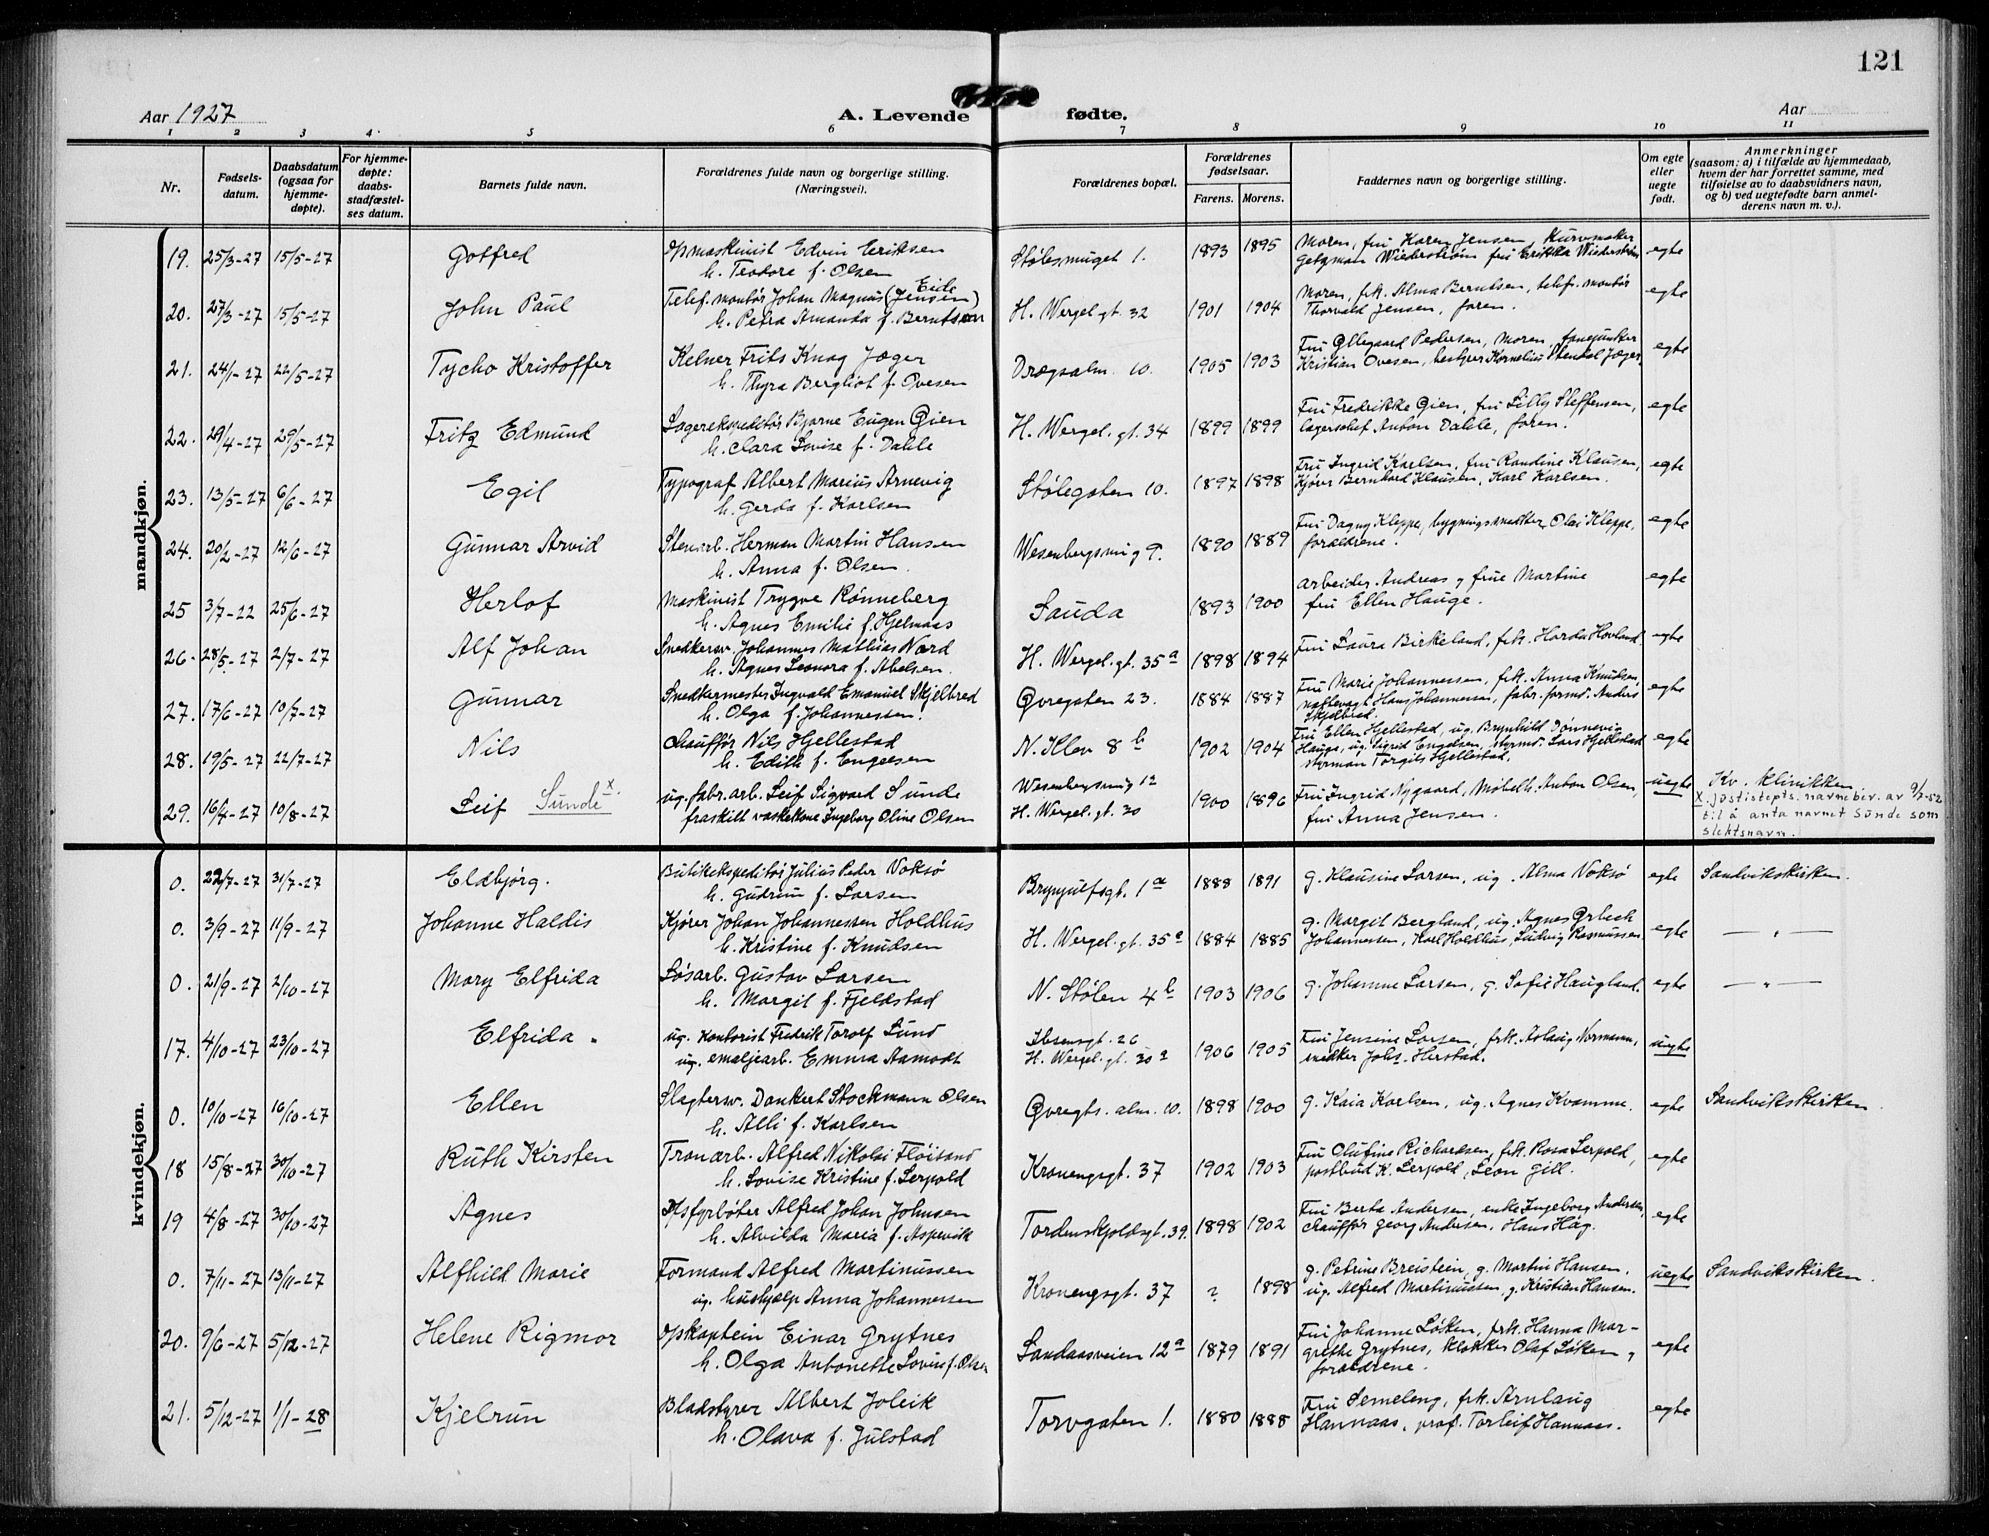 121
Aar 1927
A. Levende fødte.
Aar
1 2 3 4 5 6 7 8 9 10 11
Nr.
Fødsels-
datum.
Daabsdatum
(ogsaa for
hjemme-
døpte).
For hjemme-
døpte:
daabs-
stadfæstel-
ses datum.
Barnets fulde navn.
Forældrenes fulde navn og borgerlige stilling.
(Næringsvei).
Forældrenes bopæl.
Forældrenes
fødselsaar.
Farens. Morens.
Faddernes navn og borgerlige stilling.
Om egte
eller
uegte
født.
Anmerkninger
(saasom: a) i tilfælde av hjemmedaab,
hvem der har forrettet samme, med
tilføielse av to daabsvidners navn,
og b) ved uegtefødte barn anmel-
derens navn m. v.).
mandkjøn.
19. 25/3-27 15/5-27 Gotfred
Opmaskinist Edvin Eriksen
h. Teodore f. Olsen
Stølesmuget 1. 1893 1895
Moren, fru Karen Jensen, Kurvmaker
Getzman Wiederstrøm fru Erikka Wiederstrøm
egte
20. 27/3-27 15/5-27 John Paul
Eide
Telef. montør Johan Magnus (Jensen)
h. Petra Amanda f. Berntsen
H. Wergel. gt. 32 1901 1904
Moren, frk. Alma Berntsen, telef. montør
Thorvald Jensen, faren.
egte
21. 24/1-27 22/5-27 Tycho Kristoffer
Kelner Frits Knag Jæger
h. Thyra Bergliot f. Ovesen
Drægsalm. 10. 1905 1903
Fru Ollegaard Pedersen, Moren,
Kristian Ovesen, bestyrer Kornelius Stenkal Jæger.
egte
22. 29/4-27 29/5-27 Fritz Edmund
Lagerekspeditør Bjarne Eugen Gien
h. Clara Lovise f. Dahle
H. Wergel. gt. 34 1899 1899
Fru Fredrikke Gien, fru Lilly Steffensen,
lagerchef Anton Dahle, faren.
egte
23. 13/5-27 6/6-27 Egil
Typograf Albert Marius Arnevig
h. Gerda f. Karlsen
Stølegaten 10. 1897 1898
Fru Ingrid Karlsen, fru Randine Klausen,
Kjører Bernhard Klausen, Karl Karlsen.
egte
24. 20/2-27 12/6-27 Gunnar Arvid
Stenarb. Herman Martin Hansen
h. Anna f. Olsen.
Wesenbergsmug 9. 1890 1889
Fru Dagny Kleppe, bygningssnedker Olai Kleppe,
forældrene.
egte
25 3/7-22 25/6-27 Herlof
Maskinist Trygve Rønneberg
h. Agnes Emilie f. Hjelmaas
Sauda 1893 1900
Arbeider Andreas g frue Martine
fru Ellen Hauge.
egte
26. 28/5-27 2/7-27 Alf Johan
Snedkersv. Johannes Mathias Nærd
h. Agnes Leonora f. Abelsen.
H. Wergel. gt. 35a 1898 1894
Fru Laura Birkeland, frk. Harda Hovland.
egte
27. 17/6-27 10/7-27 Gunnar
Snedkermester Ingvald Emanuel Skjelbred
h. Olga f. Johannessen.
Øvregaten 23. 1884 1887
Fru Marie Johannessen, frk. Anna Knudsen,
nattevagt Hans Johannessen, fabr. formd. Anders
Skjelbred.
egte
28. 19/5-27 22/7-27 Nils
Chauffør Nils Hjellestad
h. Edith f. Engelsen
N. Klev 8b 1902 1904
Fru Ellen Hjellestad, ug. Brynhild Dønnevig
Hauge, ug. Sigrid Engelsen, styrmd. Lars Hjellestad
styrman Torgils Hjellestad.
egte
29. 16/4-27 10/8-27 Leif Sunde x.
ug. fabr. arb. Leif Sigvard Sunde
fraskilt vaskekone Ingeborg Oline Olsen
Wesenbergsmug 12
H. Wergel. gt. 30
1900 1896
Fru Ingrid Nygaard, Møbelh. Anton Olsen,
fru Anna Jensen.
uegte
Kv. klinikken.
x. justistepts. navnebev. av 9/7-52
til å anta navnet Sunde som
slektsnavn.
kvindekjøn.
0. 22/7-27 31/7-27 Eldbjørg.
Butikekspeditør Julius Peder Voksø
h. Gudrun f. Larsen
Brynjulfsgt. 1a 1888 1891
g. Klausine Larsen, ug. Alma Voksø
egte Sandvikskirken.
0. 3/9-27 11/9-27 Johanne Haldis
Kjører Johan Johannessen Holdhus
h. Kristine f. Knudsen
H. Wergel. gt. 35a 1884 1885
g. Margit Bergland, ug. Agnes Grbech
Johannessen, Karl Holdhus, Ludvig Rasmussen.
egte — „ —
0. 21/9-27 2/10-27 Mary Elfrida
Løsarb. Gustav Larsen
h. Margit f. Fjeldstad
N. Stølen 4b 1903 1906
g. Johanne Larsen, g. Sofie Haugland.
egte — „ —
17. 4/10-27 23/10-27 Elfrida.
ug. kontorist Fredrik Torolf Lund
ug. emaljearb. Emma Aamodt
Ibsensgt. 26
H. Wergel. gt. 30a
1906 1905
Fru Jensine Larsen, frk. Aslaug Normann,
snekker Johs. Herstad.
uegte
0. 10/10-27 16/10-27 Ellen
Slagtersv. Dankert Stockmann Olsen
h. Alli f. Karlsen
Øvregts. alm. 10. 1898 1900
g. Kaia Karlsen, ug. Agnes Kvamme.
egte Sandvikskirken.
18 15/8-27 30/10-27 Ruth Kirsten
Tranarb. Alfred Nikolai Fløisand
h. Lovise Kristine f. Lerpold
Kroneng​sgt. 37 1902 1903
Fru Olufine Richardsen, frk. Rosa Lerpold,
postbud K. Lerpold, Leon Gill.
egte
19 4/8-27 30/10-27 Agnes
Dsfyrbøter Alfred Johan Johnsen
h. Alvilda Maria f. Aspevik
Tordenskjoldsgt. 39. 1898 1902
Fru Berta Andersen, enke Ingeborg Andersen,
chauffør Georg Andersen, Hans Hag.
egte
0. 7/11-27 13/11-27 Alfhild Marie
Formand Alfred Martinussen
ug. hushjælp Anna Johannessen
Kronengsgt. 37 ? 1898
g. Petrine Breistein, g. Martin Hansen,
ug. Alfred Martinussen, g. Kristian Hansen.
uegte Sandvikskirken.
20. 9/6-27 5/12-27 Helene Rigmor
Dpskaptein Einar Grytnes
h. Olga Antonette Lovise f. Olsen
Sandaasveien 12a 1879 1891
Fru Johanne Løken, frk. Hanna Mar-
grethe Grytnes, klokker Olaf Løken,
forældrene.
egte
21. 5/12-27 1/1-28 Kjelrun
Bladstyrer Albert Joleik
h. Olava f. Julstad
Torvgaten 1. 1880 1888
Fru Semeleng, frk. Arnlaug
Hannaas, prof. Torleif Hannaas.
egte